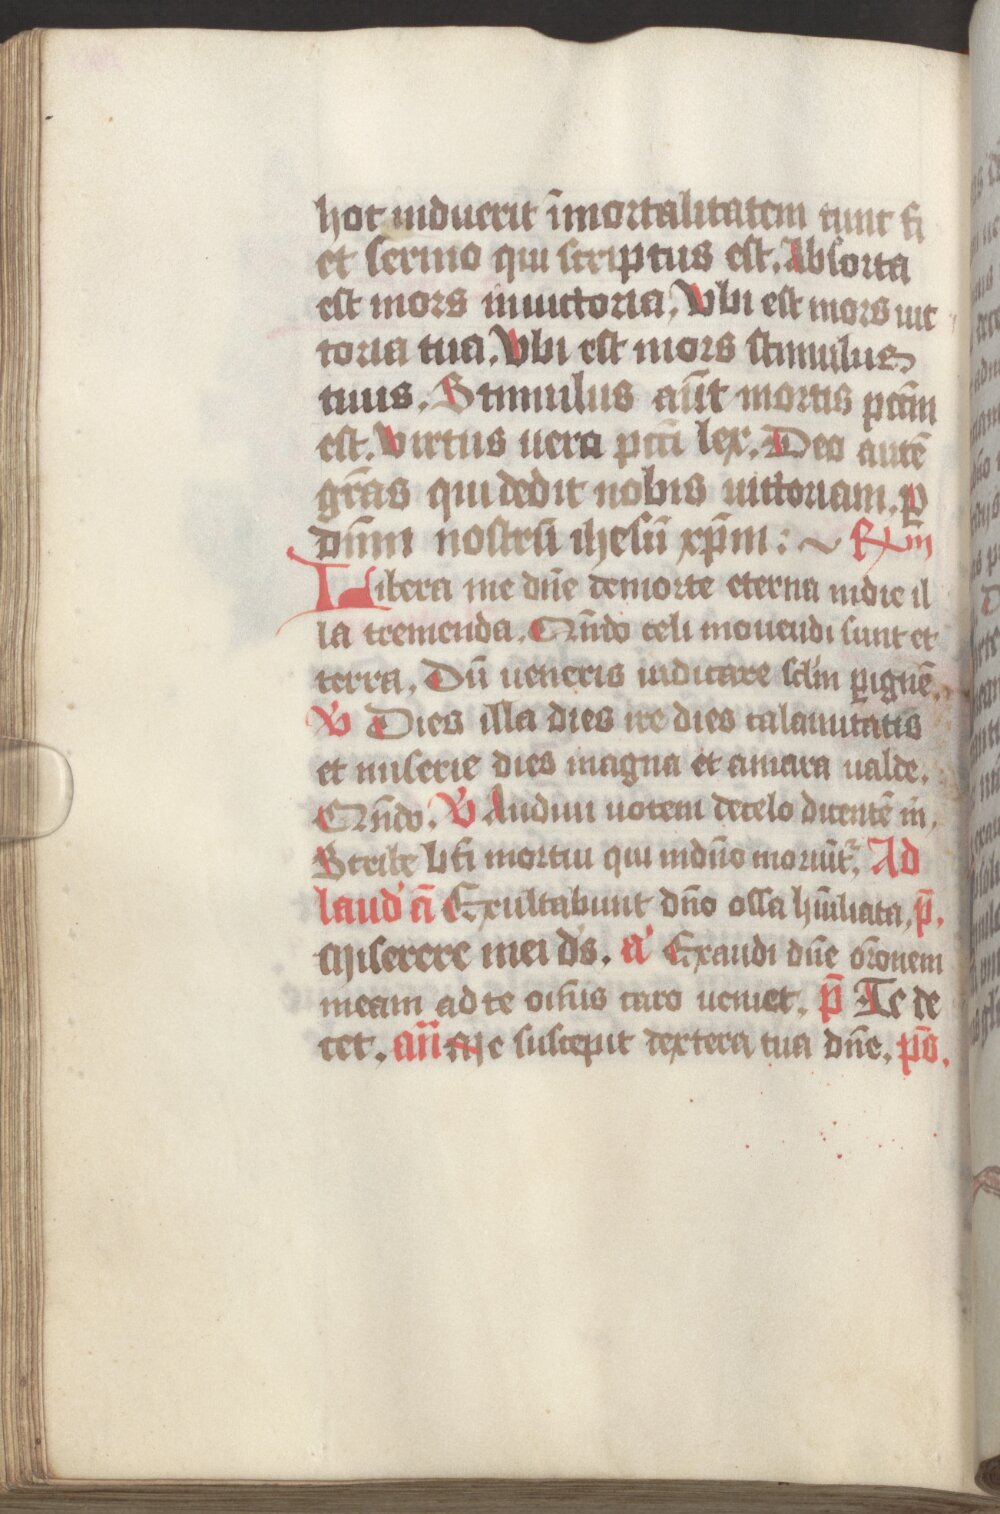 hoc induerit īmortalitatem tunc fi
et sermo qui scriptus est. Absorta
est mors inuictoria. Vbi est mors uic
toria tua. Vbi est mors stimulus
tuus. Stimulus aūt mortis pctm̄
est. Virtus uero pcti lex. Deo autē
grās qui dedit nobis uictoriam. p
dnm̄ nostrū ihesū xpm̄ :~
Libera me dn̄e demorte eterna indie il
la tremenda. Qn̄do celi mouendi sunt et
terra. Dū ueneris iudicare sclm̄ p ignē.
V Dies illa dies ire dies calamitatis
et miserie dies magna et amara ualde.
Qn̄do. V Audiui uocem decelo dicentē m̄.
Scribe bti mortui qui indn̄o moriūt². Ad
laud' ā Exultabunt dn̄o ossa hūiliata. p̄.
Miserere mei ds. a' Exaudi dn̄e orōnem
meam ad te om̄is caro ueniet. p̄ Te de
cet. an̄ Me suscepit dextera tua dn̄e. ps̄.